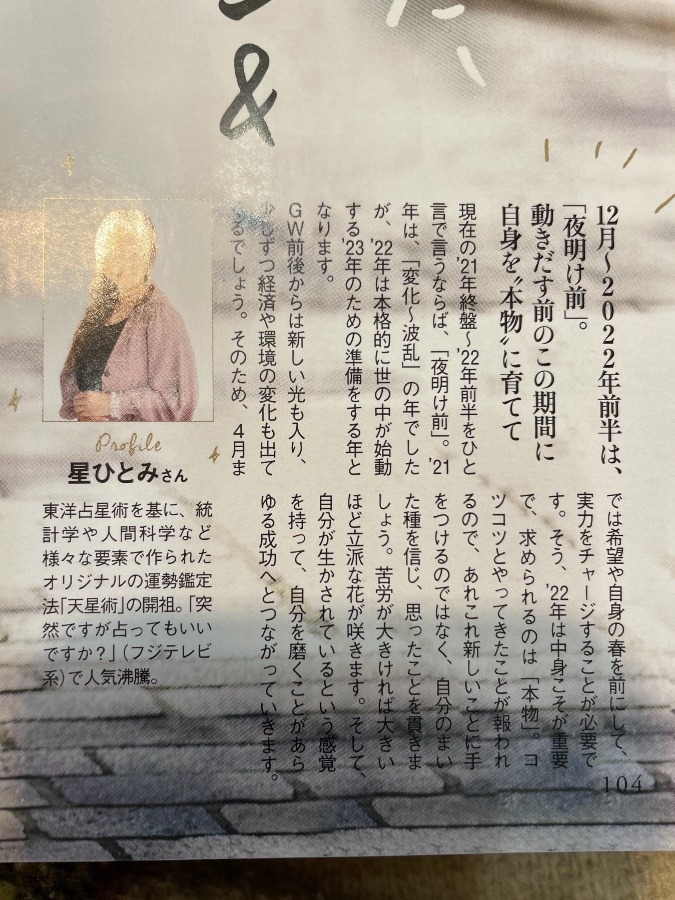 &
12月～2022年前半は、
「夜明け前」。
動きだす前のこの期間に
自身を〝本物〟に育てて
現在の'21年終盤～'22年前半をひと
言で言うならば、「夜明け前」。'21
年は、「変化～波乱」の年でした
が、'22年は本格的に世の中が始動
する'23年のための準備をする年と
なります。
GW前後からは新しい光も入り、
少しずつ経済や環境の変化も出て
るでしょう。そのため、4月ま
では希望や自身の春を前にして、
実力をチャージすることが必要で
す。そう、'22年は中身こそが重要
で、求められるのは「本物」。コ
ツコツとやってきたことが報われ
るので、あれこれ新しいことに手
をつけるのではなく、自分のまい
た種を信じ、思ったことを貫きま
しょう。苦労が大きければ大きい
ほど立派な花が咲きます。そして、
自分が生かされているという感覚
を持って、自分を磨くことがあら
ゆる成功へとつながっていきます。
Profile
星ひとみさん
東洋占星術を基に、統
計学や人間科学など
様々な要素で作られた
オリジナルの運勢鑑定
法「天星術」の開祖。「突
然ですが占ってもいい
ですか？」(フジテレビ
系)で人気沸騰。
104